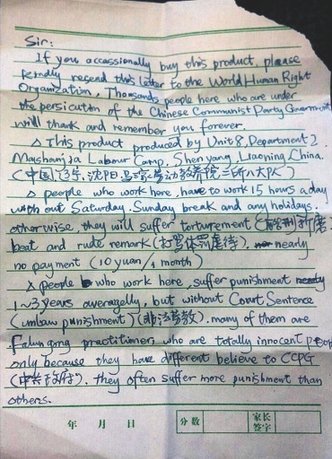 Sir:
If you occassionally buy this product, please
kindly resend this letter to the World Human Right
Organization. Thousands people here who are under
the persicution of the Chinese Communist Party Government
will thank and remember you forever.
This product produced by Unit 8, Department 2,
Mashanjia Labour Camp, Shen yang, Liaoning, China.
(中国,辽宁,沈阳,马三家劳动教养院二所八大队)
people who work here, have to work 15 hours a day
with out Saturday, Sunday break and any holidays.
otherwise, they will suffer torturement
beat and rude remark (打骂体罚虐待), nearly
no payment (10 yuan/1 month)
people who work here, suffer punishment
1~3 years averagelly, but without Court Sentence
(unlaw punishment) (非法劳教). many of them are
Falun gong practitioner, who are totally innocent people
only because they have different believe to CCPG
(中共政府), they often suffer more punishment than
others.
年 月 日
分数
家长
签字